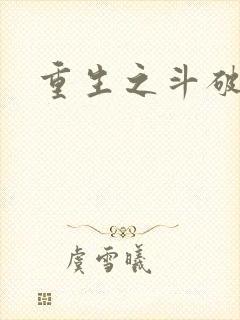 重生之斗破
虞雪曦